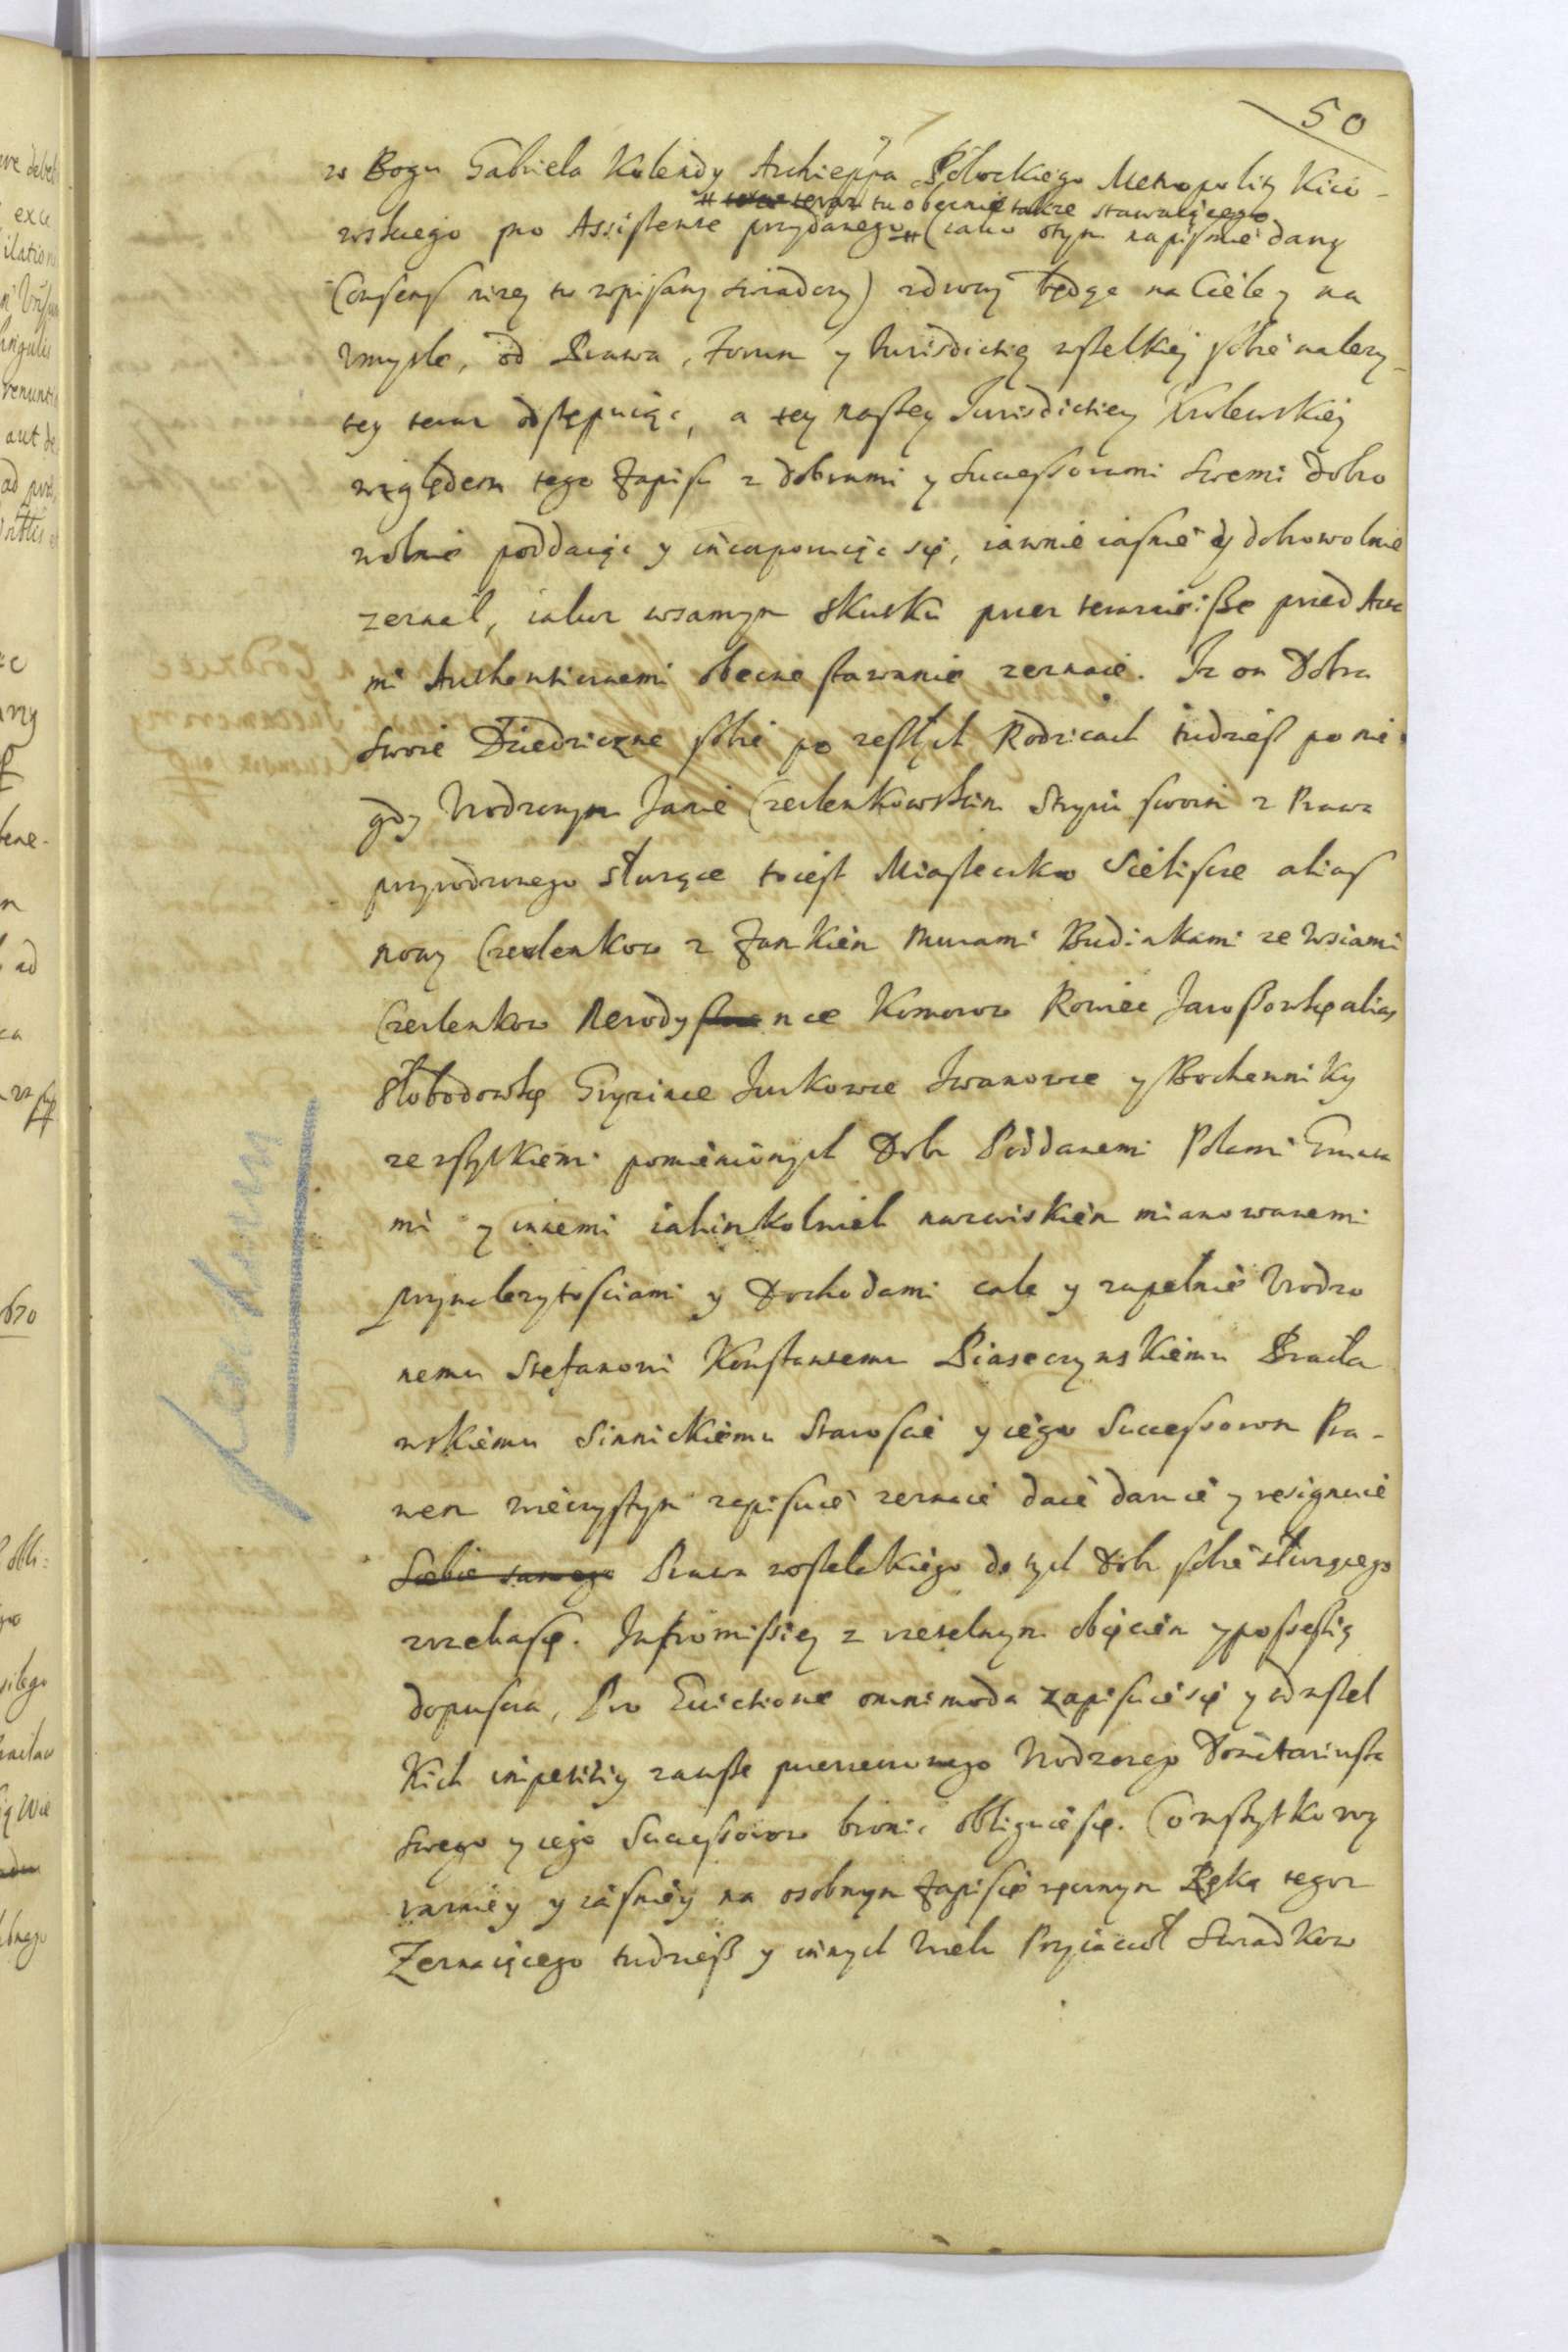 50
w Bogu Gabriela Kolendy Archieppa Połockiego Metropolity Kiio-
teraz tu obecnie także stawaiącego
wskiego pro Assistente przydanego (iako otym napiśmie dany
Consens niżey tu wpisany swiadczy) zdrowy będąc na Ciele y na
Vmysle, od Prawa, Forum y Jurisdictiey wszelkiey sobie należy-
tey teraz odstępuiąc, a tey naszey Jurisdictiey Krolewskiey
względem tego Zapisu z dobrami y Successorami swemi dobro
wolnie poddaiąc y incorporuiąc się, iawnie iasnie y dobrowolnie
zeznał, iakoż wsamym skutku przez teraznieisze przed Acta
mi Authenticznemi obecne stawanie zeznaie. Iż on Dobra
swoie Dziedziczne sobie po zeszłych Rodzicach tudziesz po nie
gdy Vrodzonym Janie Czerlenkowskim Stryiu swoim z Prawa
przyrodzonego służące toiest Miasteczko Sieliscze alias
nowy Czerlenkow z Zamkiem Murami Budinkami ze Wsiami
Czerlenkow Rerodynce Komorow Rowiec Jaroszowkę alias
Słobodowkę Hryzince Jurkowce Iwanowce y Bochenniky
ze wszytkiemi pomienionych Dobr Poddanemi Polami Grunta
mi y innemi iakimkolwiek nazwiskiem mianowanemi
przynależytosciami y Dochodami cale y zupełnie Vrodzo
nemu Stefanowi Konstantemu Piaseczynskiemu Bracła
wskiemu Sinnickiemu Staroscie y iego Successorom Pra-
wem wieczystym zapisuie zeznaie daie daruie y resignuie
Siebie samego Prawa wszelakiego do tych Dobr sobie służącego
zrzekasię. Intromissiey z rzetelnym obięciem y possessią
dopuscza, Pro Evictione omnimoda zapisuie się y od wszel
kich impeticiy zawsze pierzeczonego Vrodzonego Donatariusza
swego y iego Successorow bronic obliguie się. Co wszytko wy
razniey y iasniey na osobnym Zapisie ręcznym Ręką tegoż
Zeznaiącego tudziesz y innych Wielu Przyiacioł Swiadkow